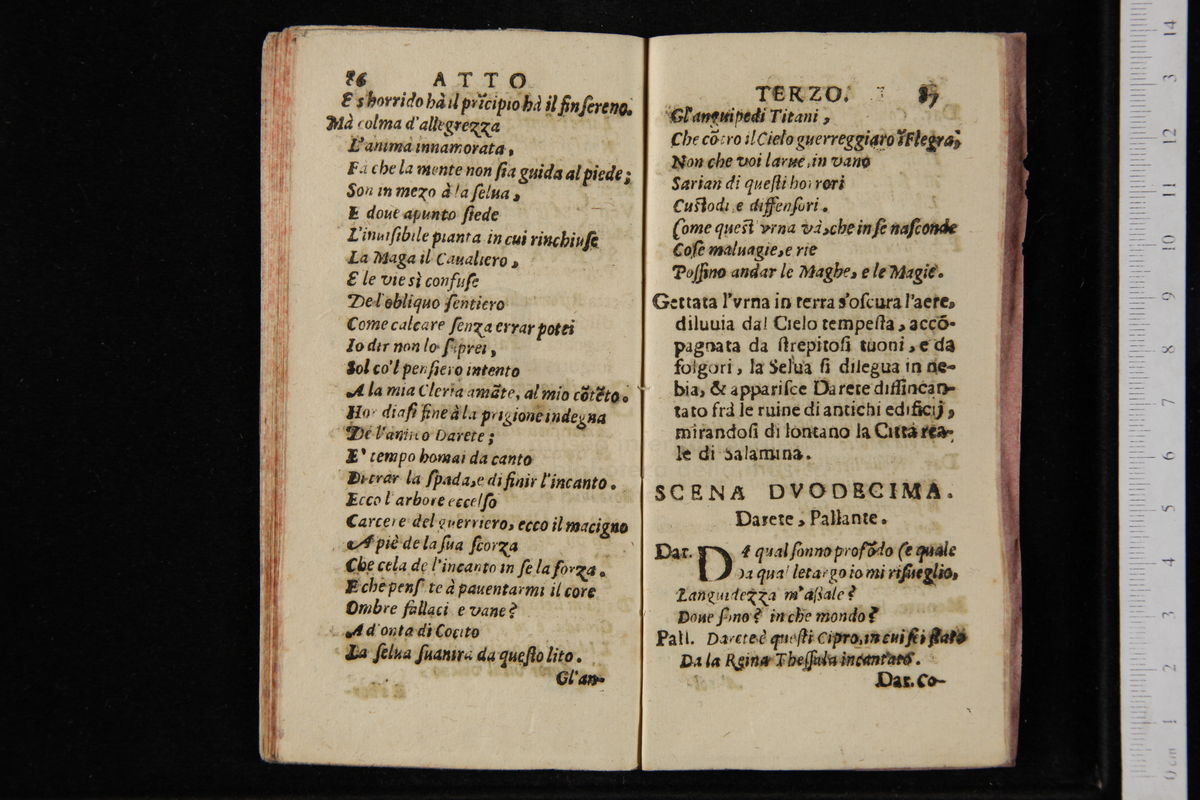 86 ATTO
E s'horrido hà il prīcipio hà il fin ſereno.
Mà colma d'allegrezza
L'anima innamorata,
Fà che la mente non ſia guida al piede;
Son in mezo à la ſelua,
E doue apunto ſiede
L'inuiſibile pianta in cui rinchiuſe
La Maga il Caualiero,
E le vie sì confuſe
De l'obliquo ſentiero
Come calcare ſenza errar potei
Io dir non lo ſaprei,
Sol co'l penſiero intento
A la mia Cleria amāte, al mio cōtēto.
Hor diaſi fine à la prigione indegna
De l'amico Darete;
E' tempo homai da canto
Di trar la ſpada, e di finir l'incanto.
Ecco l'arbore eccelſo
Carcere del guerriero, ecco il macigno
A piè de la ſua ſcorza
Che cela de l'incanto in ſe la forza.
E che penſate à pauentarmi il core
Ombre fallaci e vane?
A d'onta di Cocito
La ſelua ſuanirà da queſto lito.
Gl'an-
TERZO. 87
Gl'anguipedi Titani,
Che cōtro il Cielo guerreggiaro ī Flegra,
Non che voi larue, in vano
Sarian di queſti horrori
Cuſtodi, e diffenſori.
Come queſt' vrna và, che in ſe naſconde
Coſe maluagie, e rie
Poſſino andar le Maghe, e le Magie.
Gettata l'vrna in terra s'oſcura l'aere,
diluuia dal Cielo tempeſta, accō-
pagnata da ſtrepitoſi tuoni, e da
folgori, la Selua ſi dilegua in ne-
bia, & appariſce Darete diſſincan-
tato frà le ruine di antichi edificij,
mirandoſi di lontano la Città rea-
le di Salamina.
SCENA DVODECIMA.
Darete, Pallante.
Dar. DA qual ſonno profōdo (e quale
Da qual letargo io mi riſueglio,
Languidezza m'aſſale?
Doue ſono? in che mondo?
Pall. Darete è queſti Cipro, in cui ſei ſtato
Da la Regina Theſſala incantato.
Dar. Co-